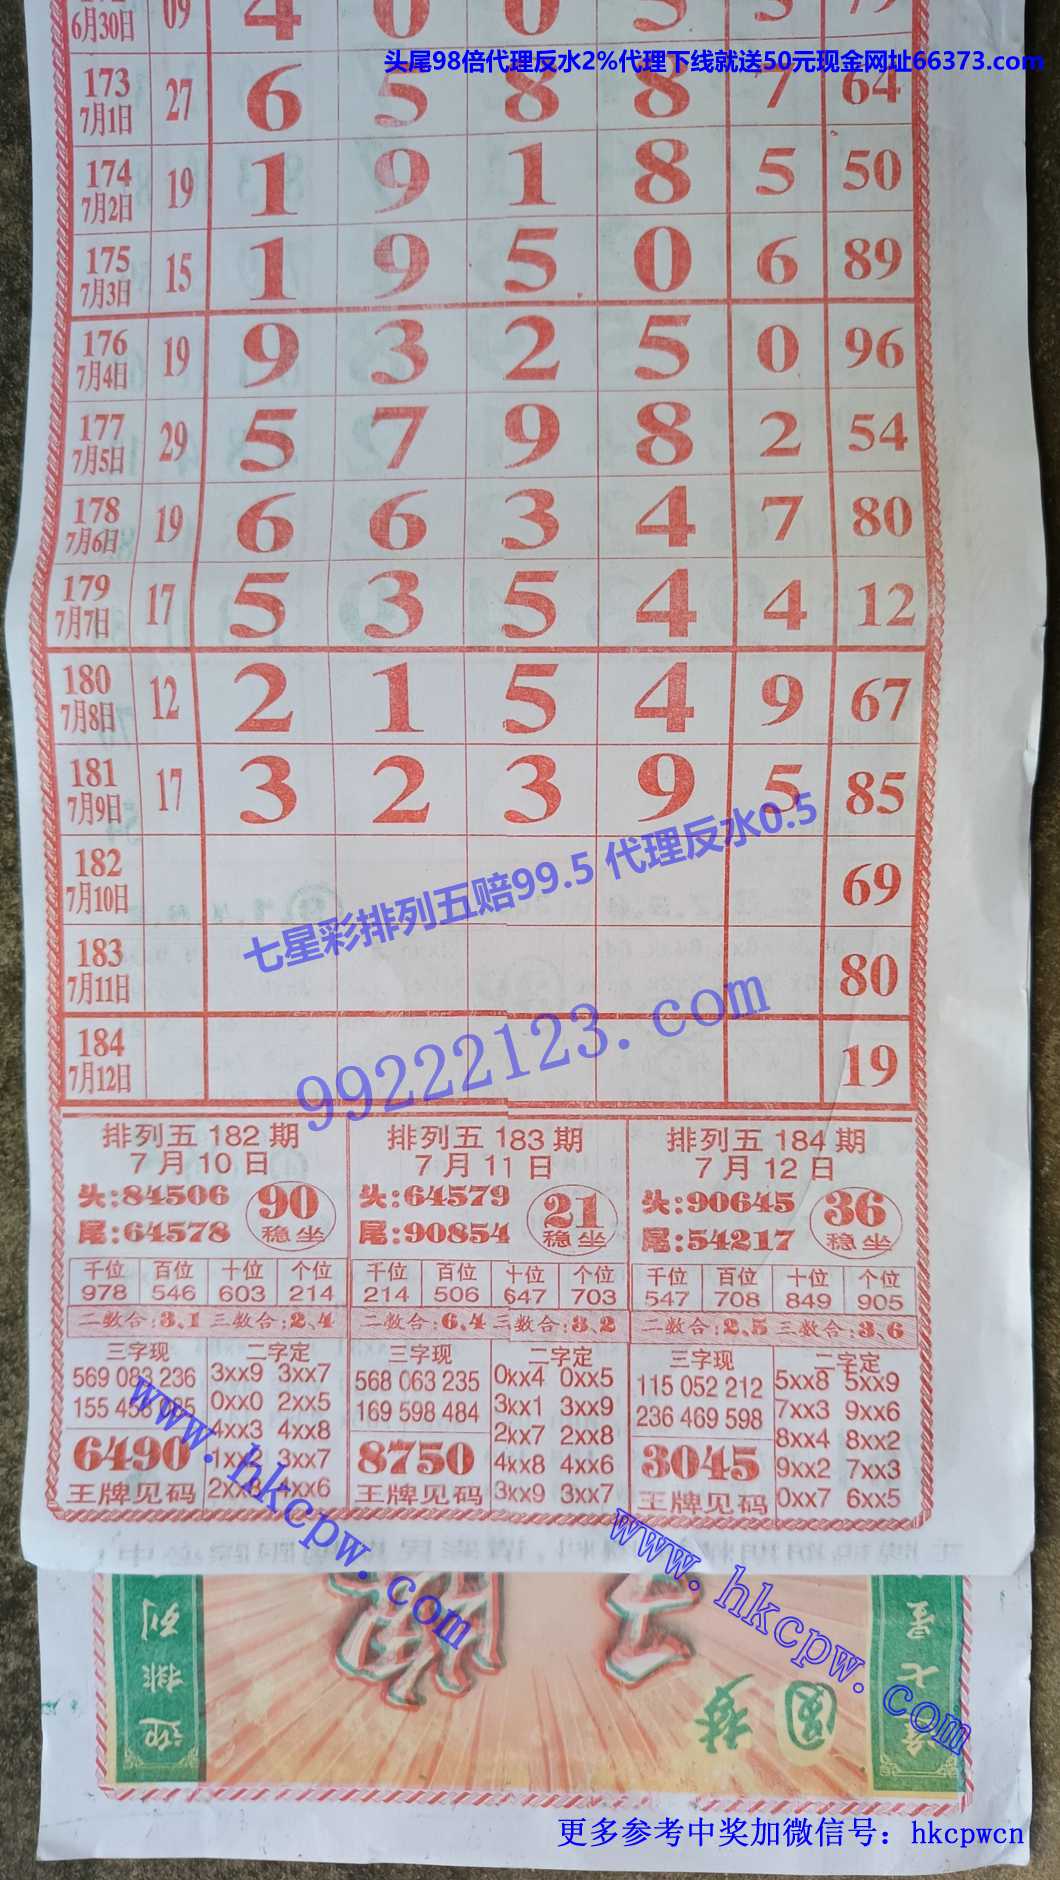 头尾98倍代理反水2%代理下线就送50元现金网址66373.com
6月30日 09 4 0 0 5 5 79
173 7月1日 27 6 5 8 8 7 64
174 7月2日 19 1 9 1 8 5 50
175 7月3日 15 1 9 5 0 6 89
176 7月4日 19 9 3 2 5 0 96
177 7月5日 29 5 7 9 8 2 54
178 7月6日 19 6 6 3 4 7 80
179 7月7日 17 5 3 5 4 4 12
180 7月8日 12 2 1 5 4 9 67
181 7月9日 17 3 2 3 9 5 85
182 7月10日 69
183 7月11日 80
184 7月12日 19
七星彩排列五赔99.5 代理反水0.5
99222123.com
排列五 182 期
7月10日
头:84506
尾:64578
90
稳坐
千位 百位 十位 个位
978 546 603 214
二数合:3、1 三数合:2、4
三字现
569 083 236
155 458 085
6490
王牌见码
二字定
3xx9 3xx7
0xx0 2xx5
4xx3 4xx8
1xx2 3xx7
2xx8 4xx6
排列五 183 期
7月11日
头:64579
尾:90854
21
稳坐
千位 百位 十位 个位
214 506 647 703
二数合:6、4 三数合:3、2
三字现
568 063 235
169 598 484
8750
王牌见码
二字定
0xx4 0xx5
3xx1 3xx9
2xx7 2xx8
4xx8 4xx6
3xx9 3xx7
排列五 184 期
7月12日
头:90645
尾:54217
36
稳坐
千位 百位 十位 个位
547 708 849 905
二数合:2、5 三数合:3、6
三字现
115 052 212
236 469 598
3045
王牌见码
二字定
5xx8 5xx9
7xx3 9xx6
8xx4 8xx2
9xx2 7xx3
0xx7 6xx5
www.hkcpw.com
www.hkcpw.com
圆梦
迎排列
七星
更多参考中奖加微信号：hkcpwcn